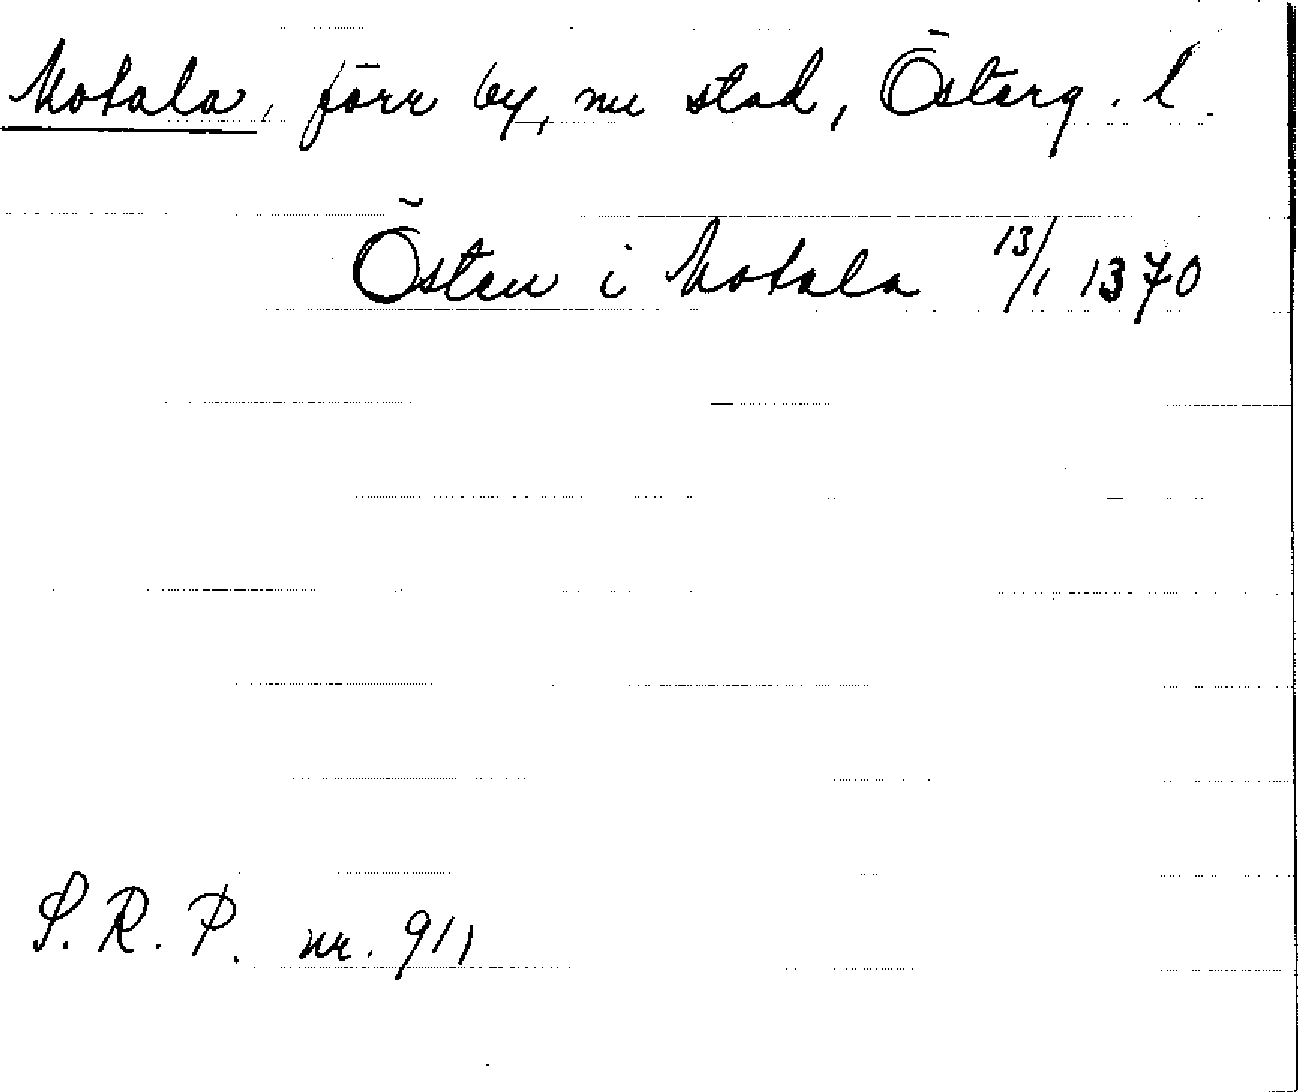 Motala, förr by, nu stad, Österg. l.
Östen i Motala 13/1 1370
S. R. P. nr. 911